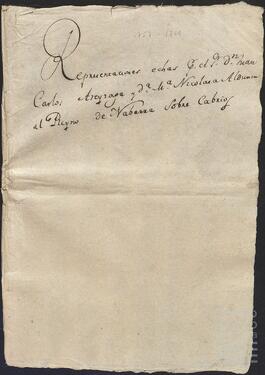 1757-1768
Representaciones echas P. el S.r D.n Juan
Carlos Areyzaga y D.a M.a Nicolasa Alduncin
al Reyno de Nabarra sobre Cabrios